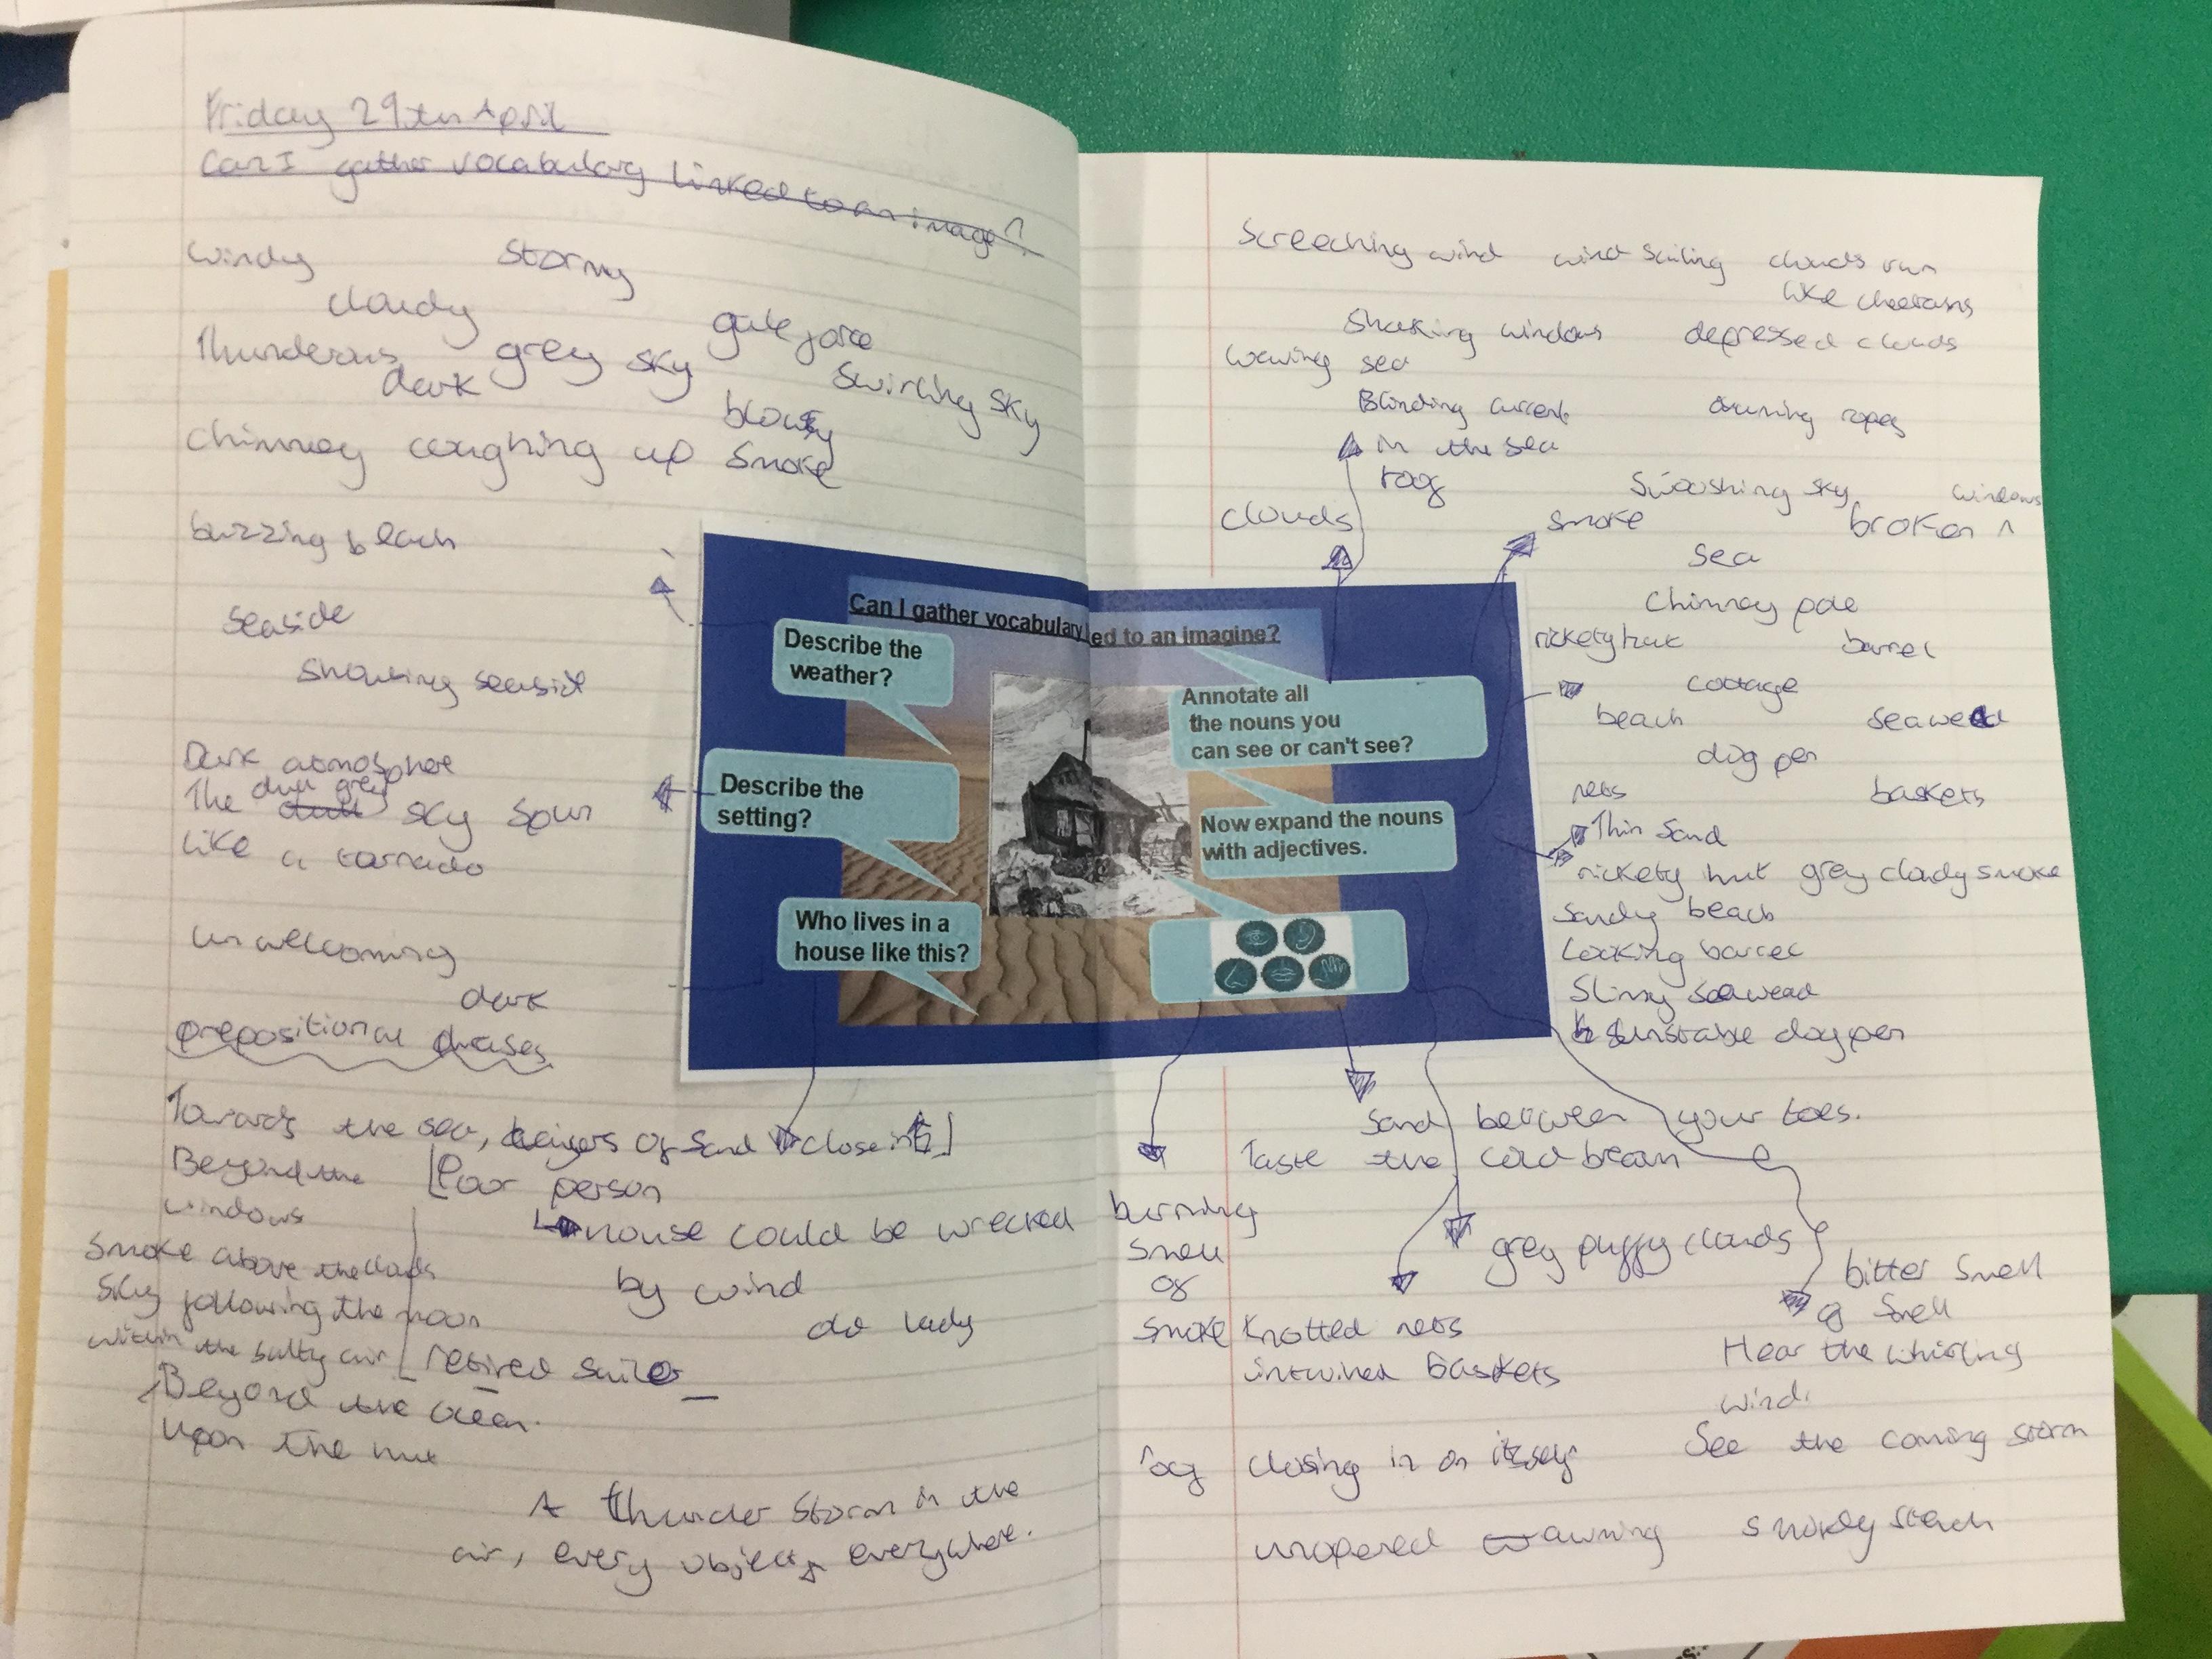 Friday 29th April
Can I gather vocabulary linked to an image?
windy stormy
cloudy
gale force
Thunderous grey sky
dark swirling sky
blowy
chimney coughing up smoke
buzzing beach
seaside
seaside
Dark atmosphere
dull grey
The sky spun
like a tornado
unwelcoming
dark
prepositional phrases
Towards the sea, of sand close in
Beyond the
windows
[Poor person
house could be wrecked
by wind
old lady
Smoke above the clouds
Sky following the moon
within the salty air
[retired sailor
Beyond the ocean.
Upon the hut
A thunder storm in the
air, every object, everywhere.
Can I gather vocabulary ed to an imagine?
Describe the
weather?
Describe the
setting?
Who lives in a
house like this?
Annotate all
the nouns you
can see or can't see?
Now expand the nouns
with adjectives.
Screeching wind wind sailing clouds run
like cheetahs
Shaking windows depressed clouds
sea
Blinding current ropes
in the sea
fog
clouds
smoke
Swooshing sky
windows
broken ^
sea
chimney pole
rickety hut barrel
cottage
beach seaweed
dog pen
nets baskets
Thin Sand
rickety hut grey cloudy smoke
Sandy beach
Looking barrel
Slimy seawead
unstable dog pen
Sand between your toes.
Taste the cold
burning
smell
of
smoke
grey puffy clouds
bitter smell
of smell
knotted nets
intwined baskets
Hear the whirling
wind.
fog closing in on itself
See the coming storm
unopened awning smokey stench